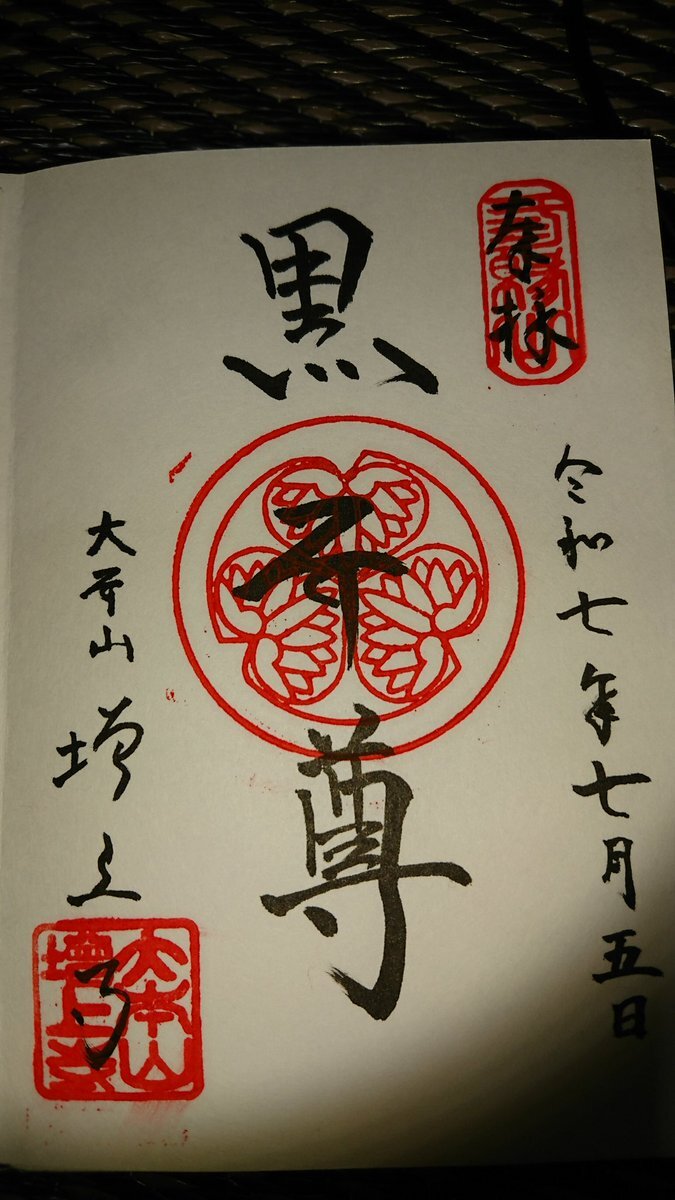 奉拝
令和七年七月五日
黒本尊
大本山
増上寺
大本山
増上寺